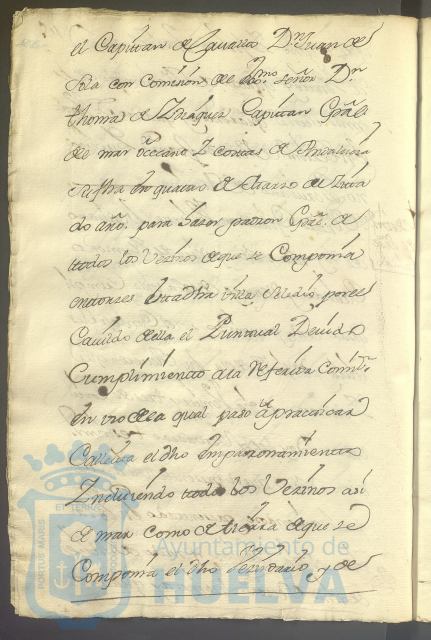 el Capitan de Cavallos Dn Juan de
Sila con Comision de el Exmo señor Dn
thomas de Idiaquez Capitan Gral
de mar occeano y costas de Andaluzia
su fha en quatro de Marzo de
do año, para hazer padron Gral de
ttodos los Vezinos de que se Componia
entonzes esta dha villa se le dio por el
Cavildo de ella el Puntual Devido
Cumplimiento a la referida Comision
En virtud de la qual paso a practicar
el dho Empadronamiento
Incluiendo todos los Vezinos asi
de mar como de tierra de que se
Componia el dho Vezindario, y de
PORTUS MARIS
ET TERRAE
Ayuntamiento de
HUELVA